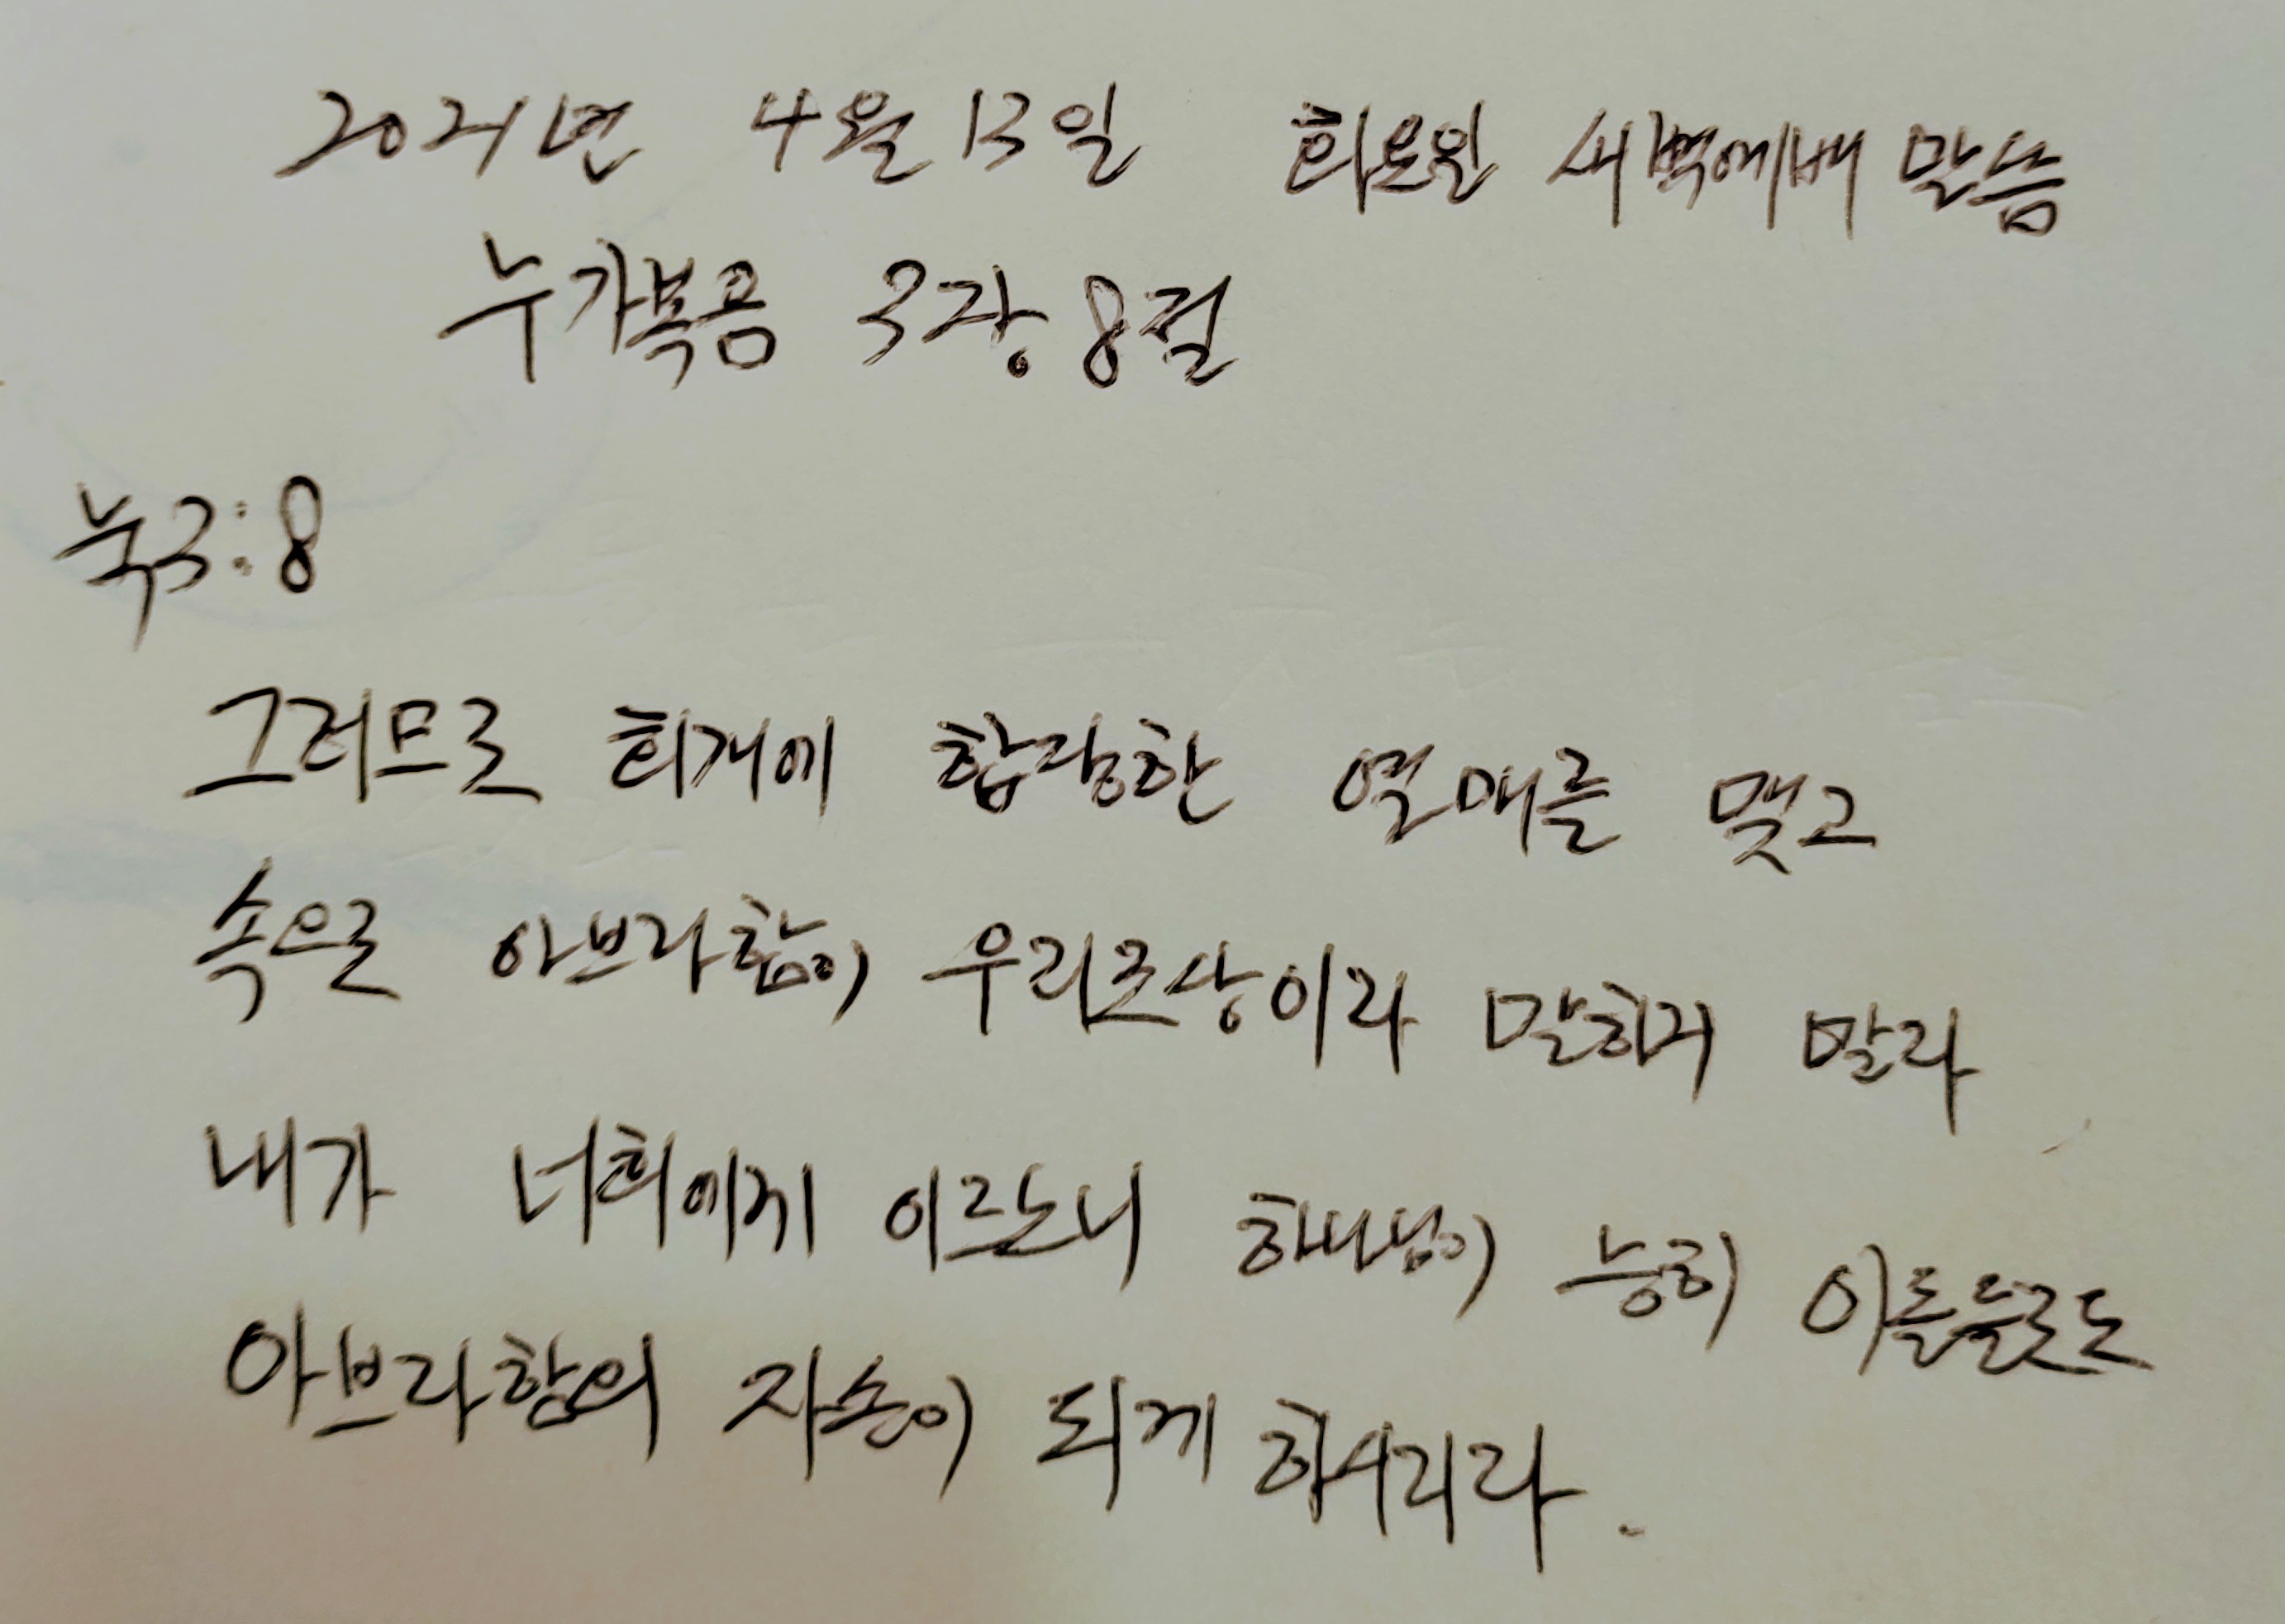 2021년 4월 13일 화요일 새벽예배 말씀
누가복음 3장 8절
눅3:8
그러므로 회개에 합당한 열매를 맺고
속으로 아브라함이 우리조상이라 말하지 말라
내가 너희에게 이르노니 하나님이 능히 이돌들로도
아브라함의 자손이 되게 하시리라.